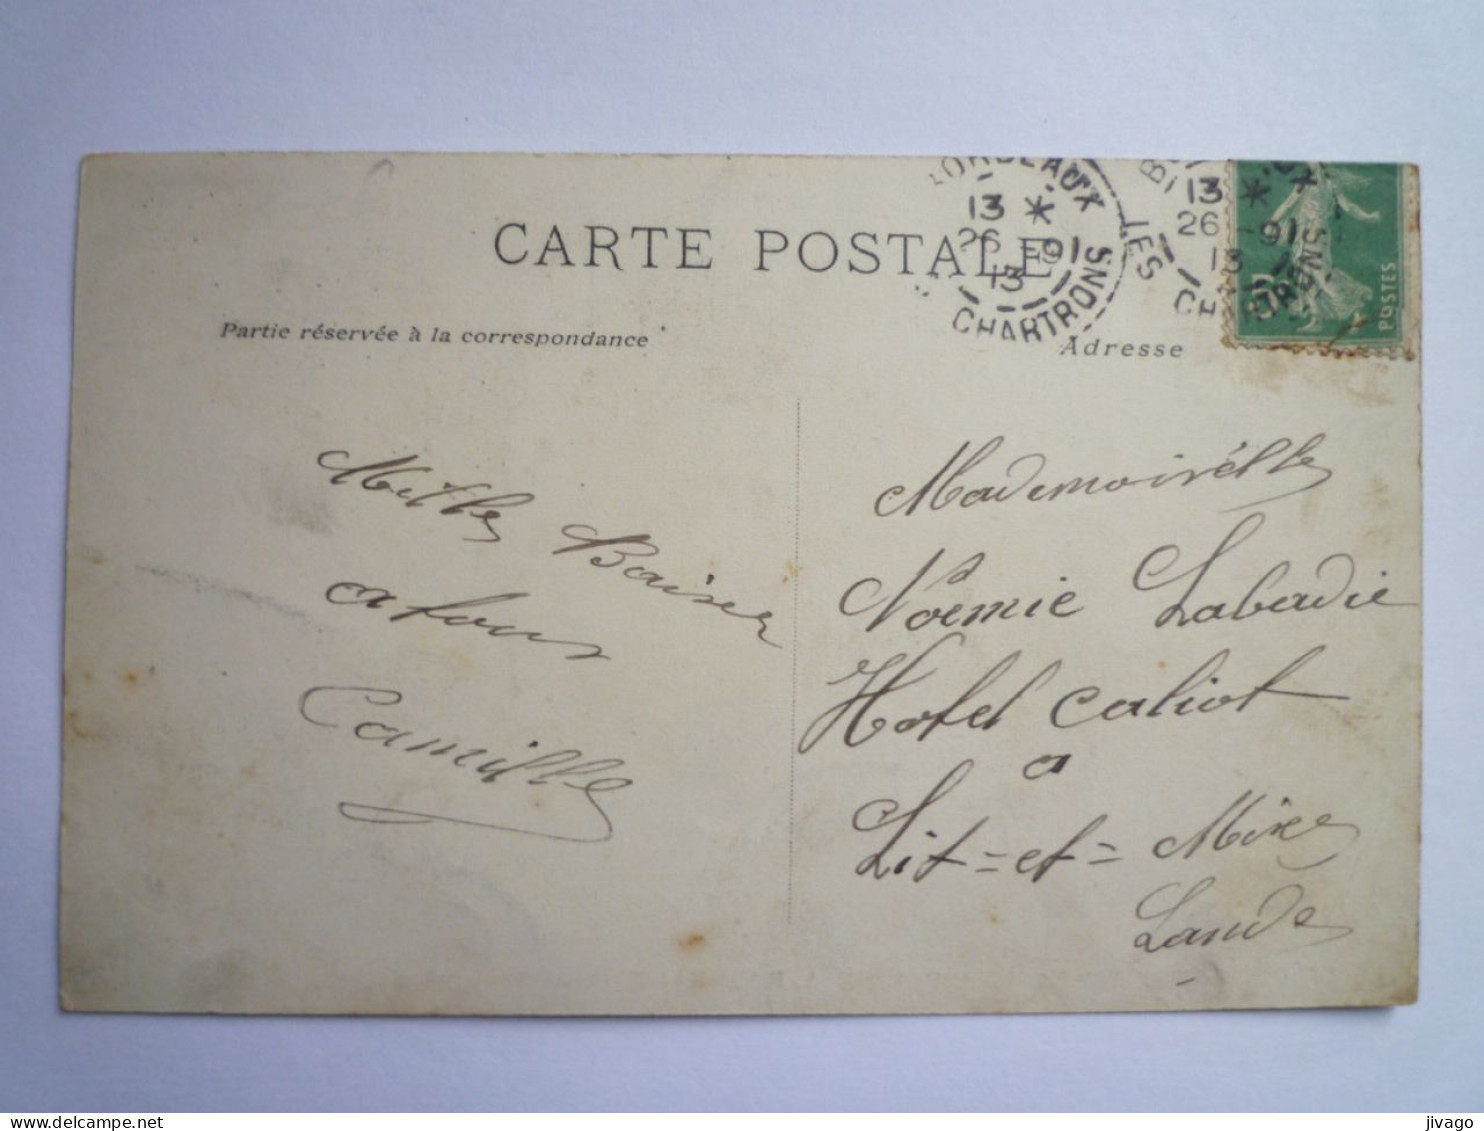 CARTE POSTALE
BORDEAUX
13 *
26 -9
13
LES CHARTRONS
13 *
26 -9
13
LES CHARTRONS
POSTES
Partie réservée à la correspondance
Adresse
Mille Baiser
a tous
Camille
Mademoiselle
Noémie Labadie
Hotel Caliot
a
Lit=et=Mixe
Lande
delcampe.net
jivago